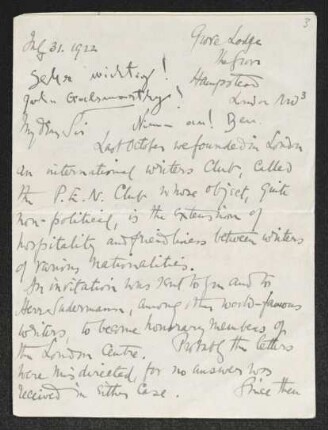 3
July 31. 1922
Grove Lodge
The Grove
Hampstead
London NW3
Sehr wichtig!
John Galsworthy!
Nimm an! Ben.
My dear Sir
Last October we founded in London
an international writers Club, called
the P.E.N. Club whose object, quite
non-political, is the extension of
hospitality and friendliness between writers
of various nationalities.
An invitation was sent to you and to
Herr Sudermann, among other world-famous
writers, to become honorary members of
the London Centre. Probably the letters
were misdirected, for no answer was
received in either case. Since then